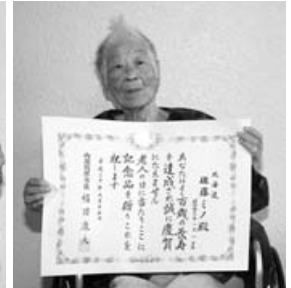 北海道
佐藤ミノ殿
あなたはよく百歳の長寿
を達成され誠に慶賀
にたえません
老人の日に当たりここに
記念品を贈りこれを
祝します
内閣総理大臣 福田康夫